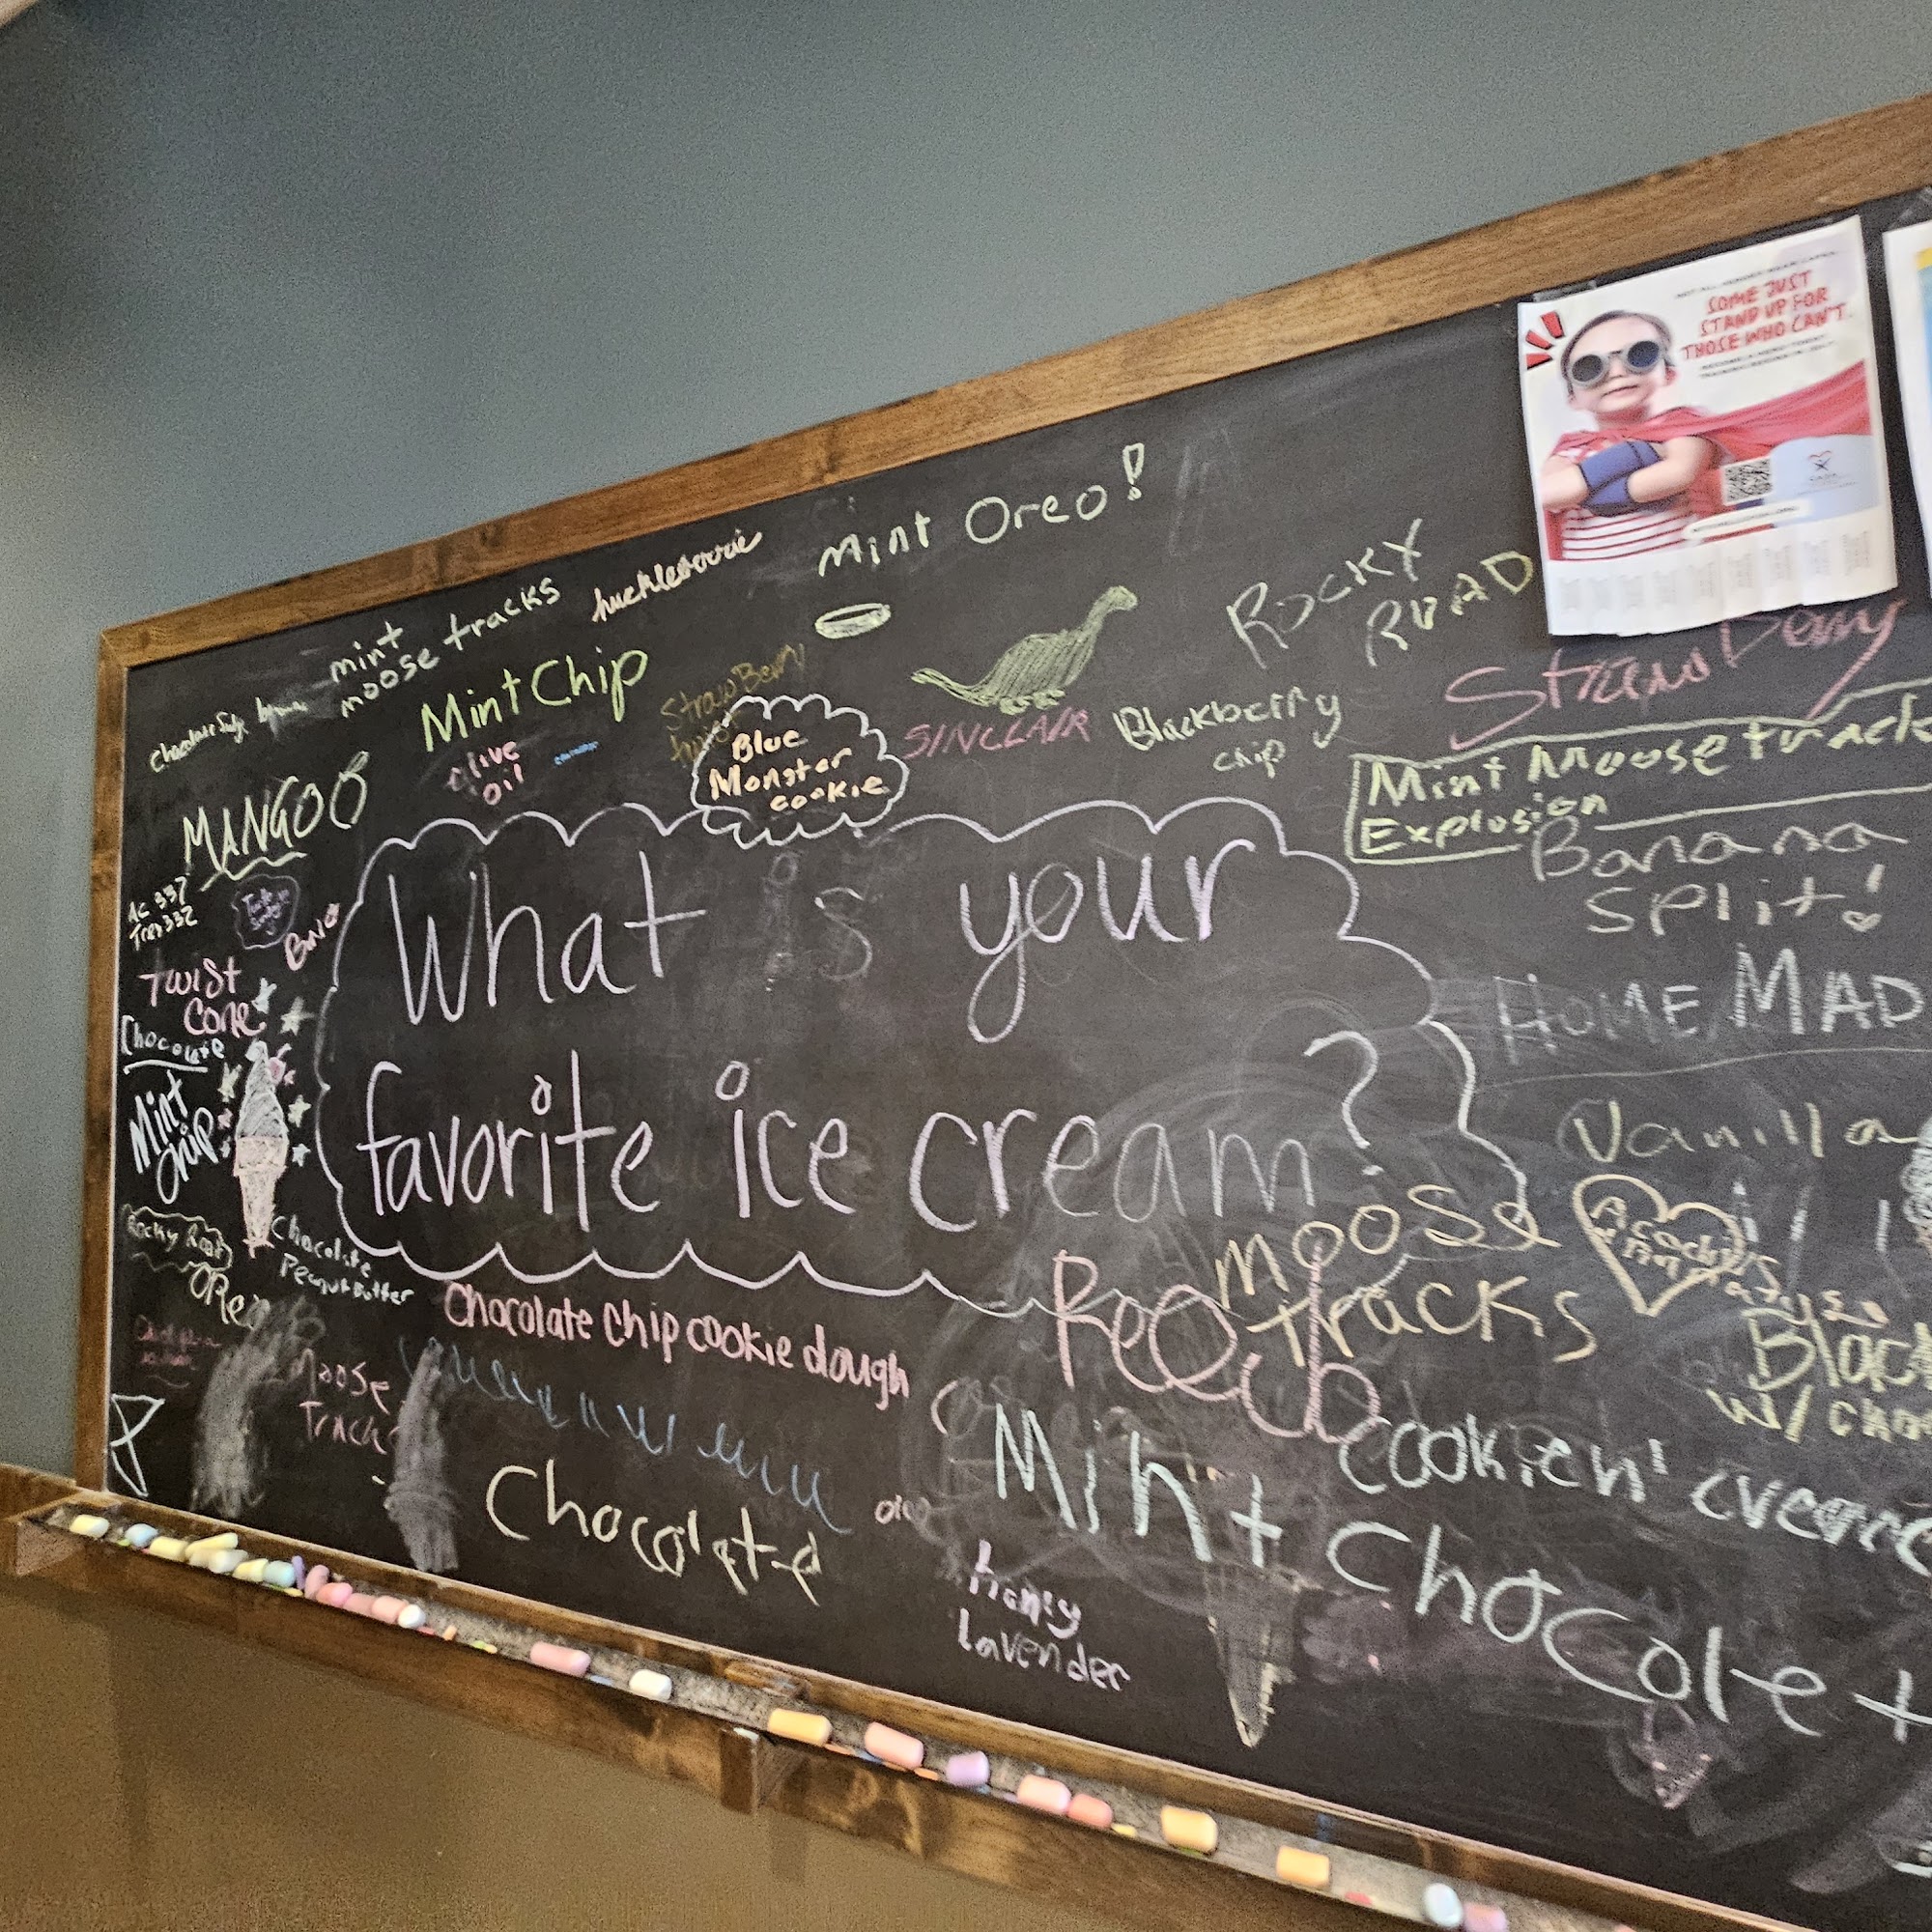 SOME JUST
STAND UP FOR
THOSE WHO CAN'T.
Mint Oreo!
huckleberrie
mint
moose tracks
Mint Chip
StrawBerry
ROCKY
ROAD
Strawberry
SINCLAIR
Blackberry
chip
Blue
Monster
cookie
olive
oil
MANGOO
Mint Moose track
Explosion
Banana
split!
AC 337
Tren 332
TWIST
CONE
Chocolate
Mint
chip
What is your
favorite ice cream?
HOME MAD
Vanilla
Rocky Road
ORe
Chocolate
Peanut Butter
Chocolate Chip cookie dough
moose
tracks
Black
w/ cho
Moose
Track
Chocolate
Mint
cookien' cream
Chocolate +
honey
lavender